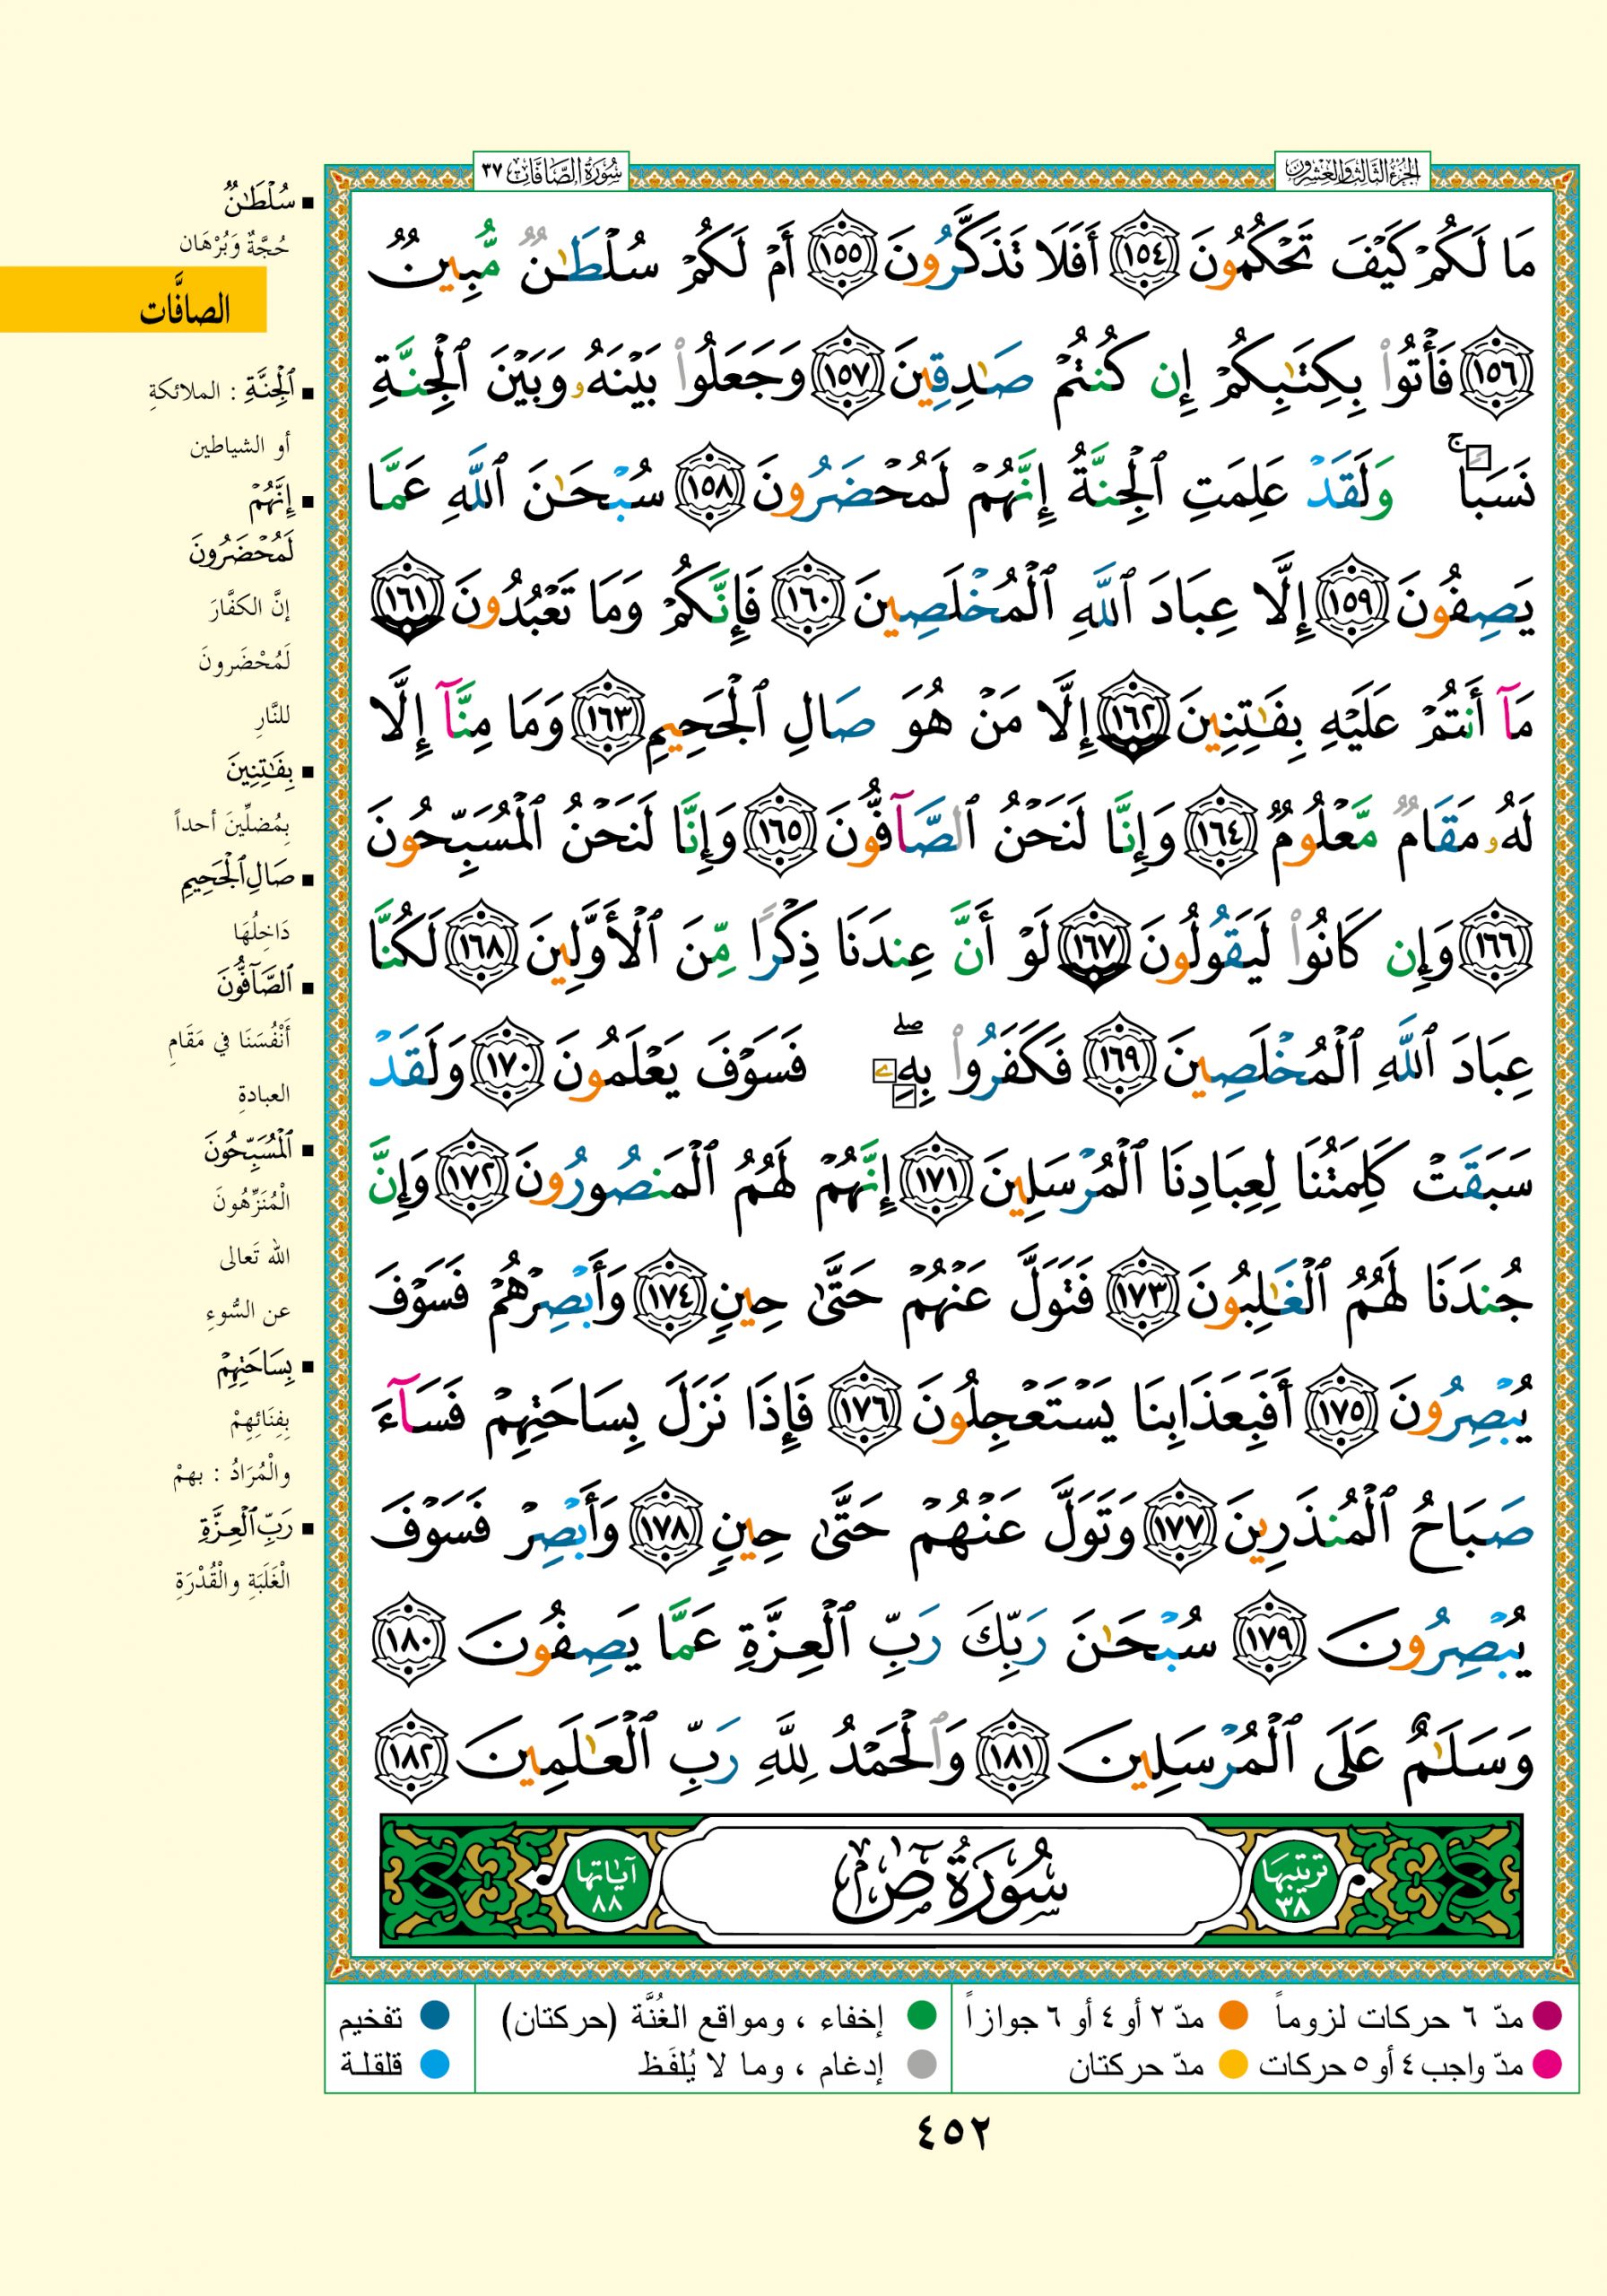 الجزء الثالث والعشرون
سُورَةُ الصَّافَّات ٣٧
مَا لَكُمْ كَيْفَ تَحْكُمُونَ ١٥٤ أَفَلَا تَذَكَّرُونَ ١٥٥ أَمْ لَكُمْ سُلْطَٰنٌ مُّبِينٌ
١٥٦ فَأْتُوا۟ بِكِتَٰبِكُمْ إِن كُنتُمْ صَٰدِقِينَ ١٥٧ وَجَعَلُوا۟ بَيْنَهُۥ وَبَيْنَ ٱلْجِنَّةِ
نَسَبًا ۚ وَلَقَدْ عَلِمَتِ ٱلْجِنَّةُ إِنَّهُمْ لَمُحْضَرُونَ ١٥٨ سُبْحَٰنَ ٱللَّهِ عَمَّا
يَصِفُونَ ١٥٩ إِلَّا عِبَادَ ٱللَّهِ ٱلْمُخْلَصِينَ ١٦٠ فَإِنَّكُمْ وَمَا تَعْبُدُونَ ١٦١
مَآ أَنتُمْ عَلَيْهِ بِفَٰتِنِينَ ١٦٢ إِلَّا مَنْ هُوَ صَالِ ٱلْجَحِيمِ ١٦٣ وَمَا مِنَّآ إِلَّا
لَهُۥ مَقَامٌ مَّعْلُومٌ ١٦٤ وَإِنَّا لَنَحْنُ ٱلصَّآفُّونَ ١٦٥ وَإِنَّا لَنَحْنُ ٱلْمُسَبِّحُونَ
١٦٦ وَإِن كَانُوا۟ لَيَقُولُونَ ١٦٧ لَوْ أَنَّ عِندَنَا ذِكْرًا مِّنَ ٱلْأَوَّلِينَ ١٦٨ لَكُنَّا
عِبَادَ ٱللَّهِ ٱلْمُخْلَصِينَ ١٦٩ فَكَفَرُوا۟ بِهِۦ ۖ فَسَوْفَ يَعْلَمُونَ ١٧٠ وَلَقَدْ
سَبَقَتْ كَلِمَتُنَا لِعِبَادِنَا ٱلْمُرْسَلِينَ ١٧١ إِنَّهُمْ لَهُمُ ٱلْمَنصُورُونَ ١٧٢ وَإِنَّ
جُندَنَا لَهُمُ ٱلْغَٰلِبُونَ ١٧٣ فَتَوَلَّ عَنْهُمْ حَتَّىٰ حِينٍ ١٧٤ وَأَبْصِرْهُمْ فَسَوْفَ
يُبْصِرُونَ ١٧٥ أَفَبِعَذَابِنَا يَسْتَعْجِلُونَ ١٧٦ فَإِذَا نَزَلَ بِسَاحَتِهِمْ فَسَآءَ
صَبَاحُ ٱلْمُنذَرِينَ ١٧٧ وَتَوَلَّ عَنْهُمْ حَتَّىٰ حِينٍ ١٧٨ وَأَبْصِرْ فَسَوْفَ
يُبْصِرُونَ ١٧٩ سُبْحَٰنَ رَبِّكَ رَبِّ ٱلْعِزَّةِ عَمَّا يَصِفُونَ ١٨٠
وَسَلَٰمٌ عَلَى ٱلْمُرْسَلِينَ ١٨١ وَٱلْحَمْدُ لِلَّهِ رَبِّ ٱلْعَٰلَمِينَ ١٨٢
ترتيبها ٣٨
سُورَةُ صٓ
آياتها ٨٨
سُلْطَٰنٌ
حُجَّةٌ وَبُرْهَان
الصافَّات
ٱلْجِنَّةِ : الملائكةِ
أو الشياطين
إِنَّهُمْ
لَمُحْضَرُونَ
إنَّ الكفَّارَ
لَمُحْضَرونَ
للنَّارِ
بِفَٰتِنِينَ
بِمُضلِّينَ أحداً
صَالِ ٱلْجَحِيمِ
دَاخِلُهَا
ٱلصَّآفُّونَ
أَنْفُسَنَا في مَقَامِ
العبادةِ
ٱلْمُسَبِّحُونَ
الْمُنَزِّهُونَ
الله تَعالى
عن السُّوءِ
بِسَاحَتِهِمْ
بِفِنَائِهِمْ
والْمُرَادُ : بهمْ
رَبِّ ٱلْعِزَّةِ
الْغَلَبَةِ والْقُدْرَةِ
مدّ ٦ حركات لزوماً
مدّ ٢ أو ٤ أو ٦ جوازاً
إخفاء ، ومواقع الغُنَّة (حركتان)
تفخيم
مدّ واجب ٤ أو ٥ حركات
مدّ حركتان
إدغام ، وما لا يُلفَظ
قلقلة
٤٥٢